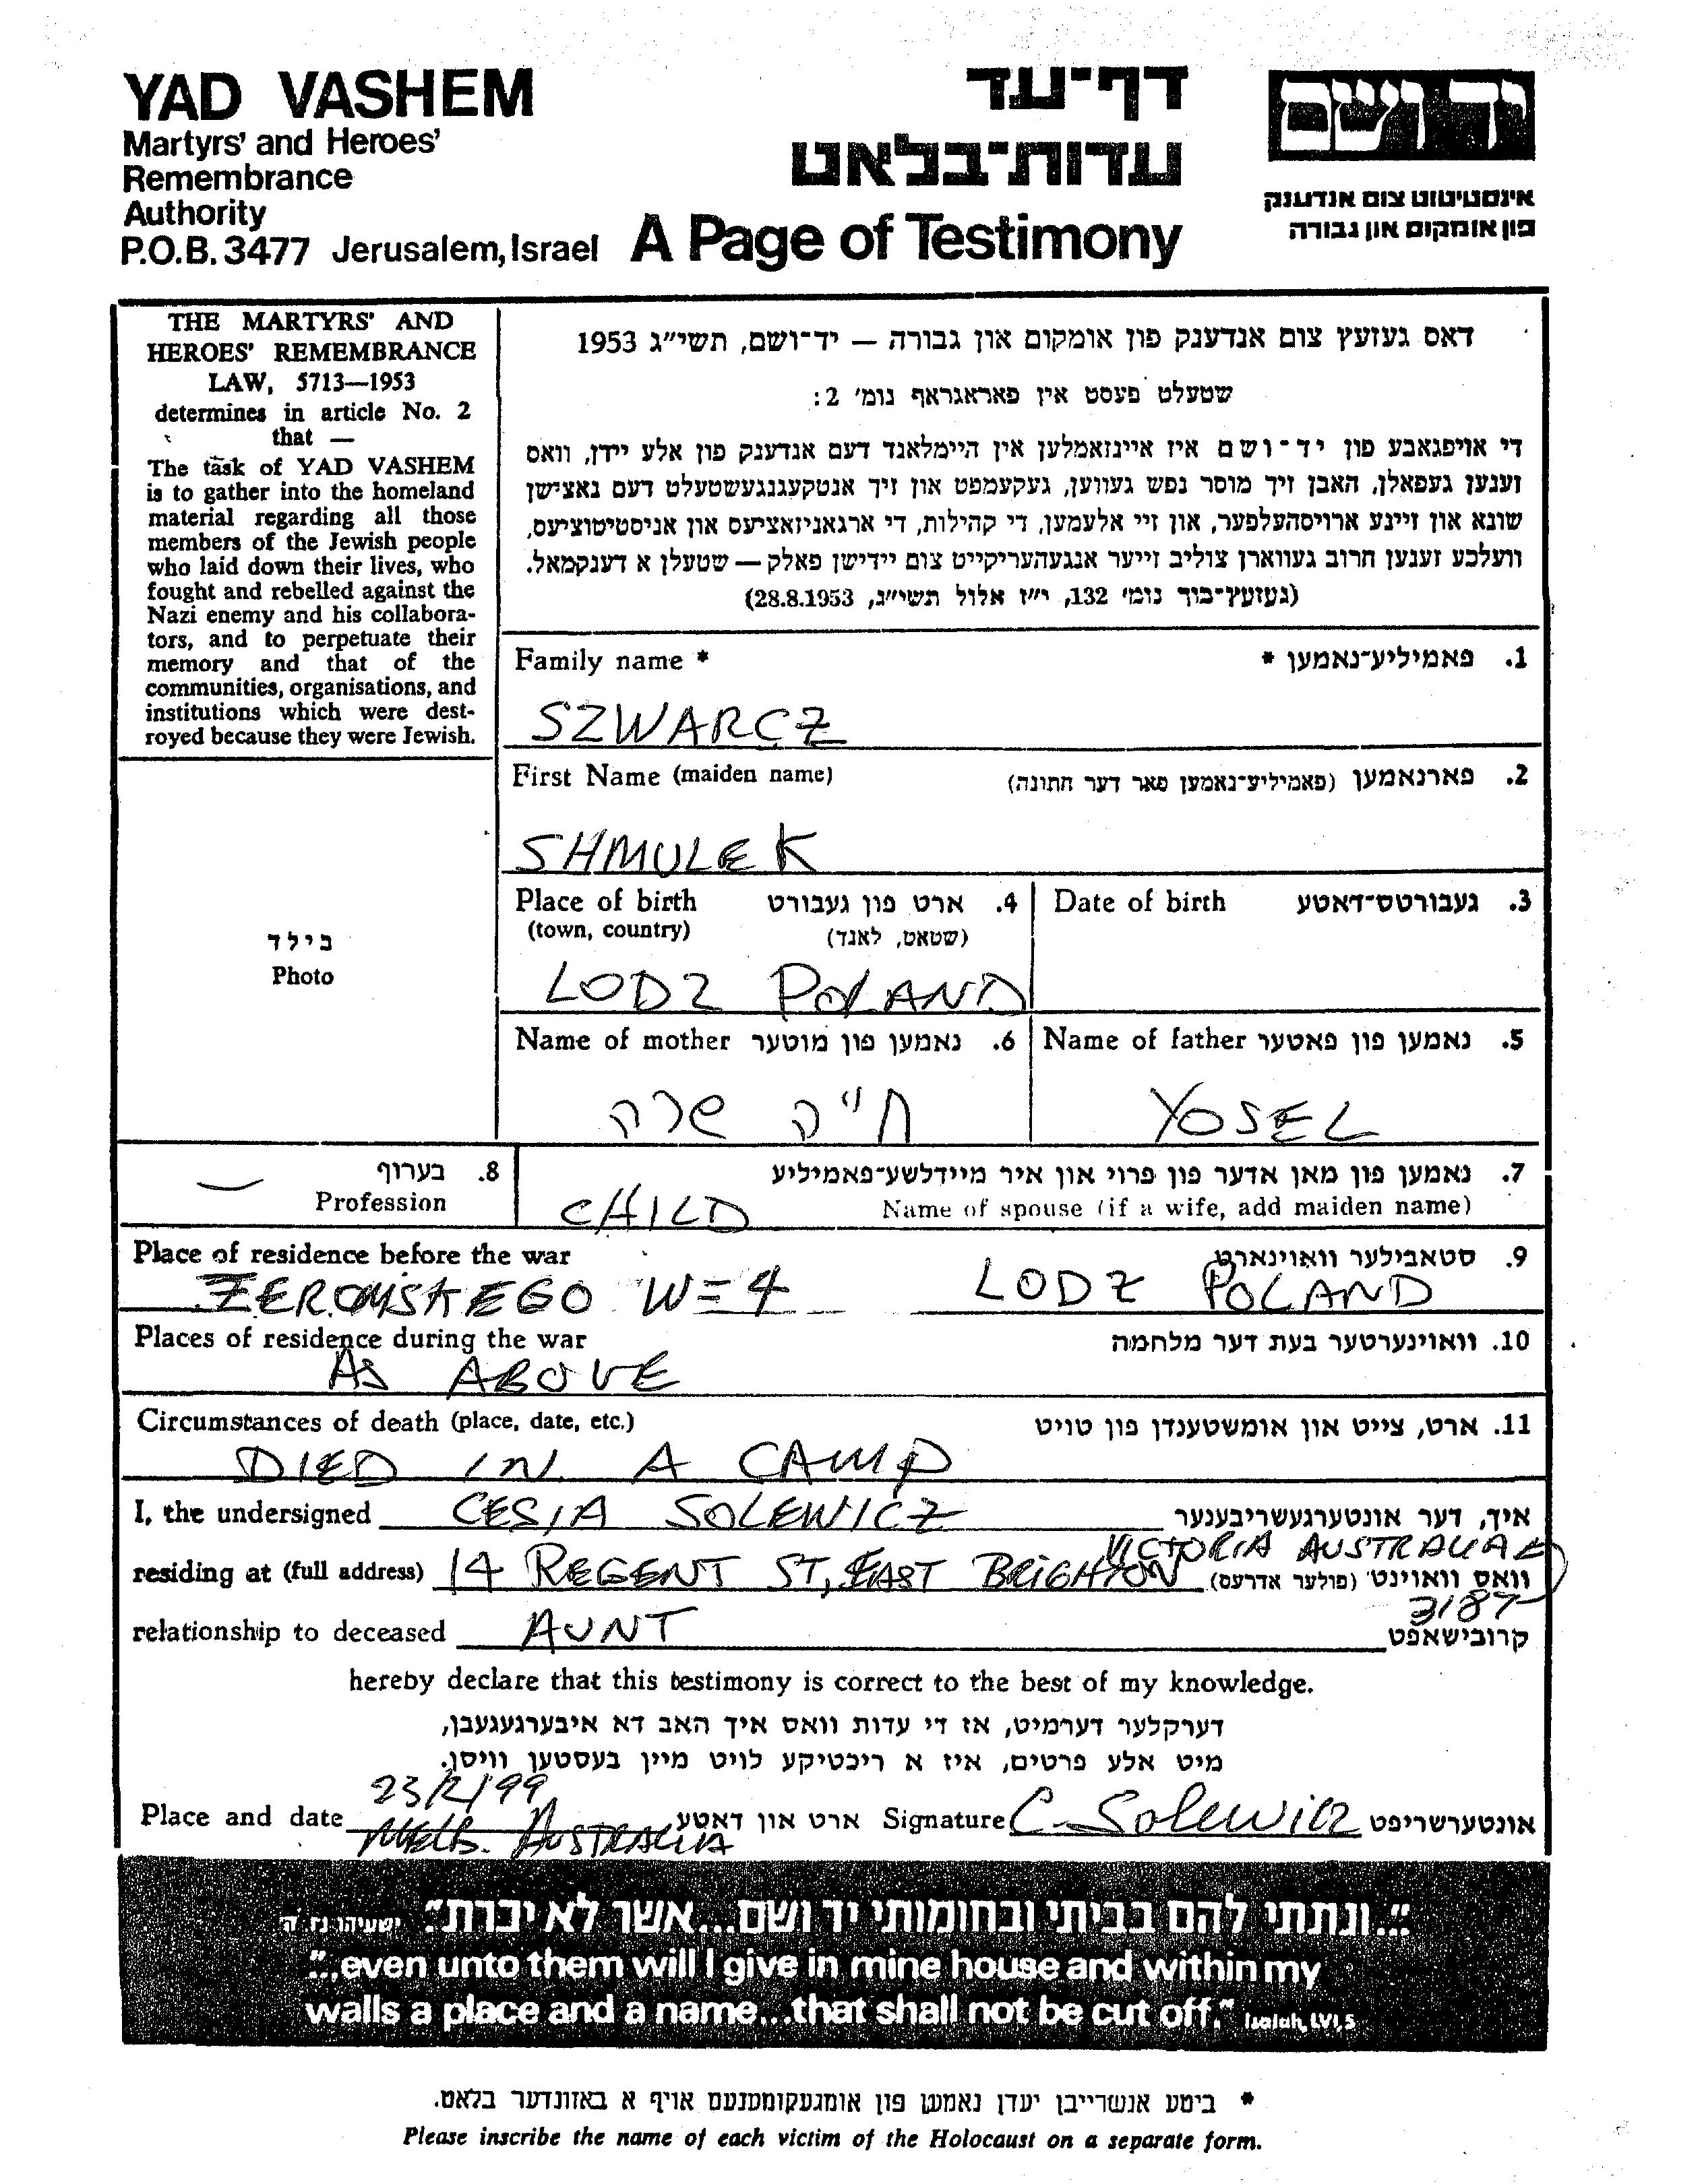 YAD VASHEM
Martyrs' and Heroes'
Remembrance
Authority
P.O.B. 3477 Jerusalem, Israel
דף־עד
עדות־בלאט
A Page of Testimony
יד ושם
אינסטיטוט צום אנדענק
פון אומקום און גבורה
THE MARTYRS' AND
HEROES' REMEMBRANCE
LAW, 5713—1953
determines in article No. 2
that —
The task of YAD VASHEM
is to gather into the homeland
material regarding all those
members of the Jewish people
who laid down their lives, who
fought and rebelled against the
Nazi enemy and his collabora-
tors, and to perpetuate their
memory and that of the
communities, organisations, and
institutions which were dest-
royed because they were Jewish.
דאס געזעץ צום אנדענק פון אומקום און גבורה — יד־ושם, תשי״ג 1953
שטעלט פעסט אין פאראגראף נומ׳ 2:
די אויפגאבע פון יד־ושם איז איינזאמלען אין היימלאנד דעם אנדענק פון אלע יידן, וואס
זענען געפאלן, האבן זיך מוסר נפש געווען, געקעמפט און זיך אנטקעגנגעשטעלט דעם נאצישן
שונא און זיינע ארויסהעלפער, און זיי אלעמען, די קהילות, די ארגאניזאציעס און אניסטיטוציעס,
וועלכע זענען חרוב געווארן צוליב זייער אנגעהעריקייט צום יידישן פאלק — שטעלן א דענקמאל.
(געזעץ־בוך נומ׳ 132, י״ז אלול תשי״ג, 28.8.1953)
Family name * פאמיליע־נאמען * .1
SZWARCZ
First Name (maiden name) פארנאמען (פאמיליע־נאמען פאר דער חתונה) .2
SHMULEK
Place of birth ארט פון געבורט .4
(town, country) (שטאט, לאנד)
LODZ POLAND
Date of birth געבורטס־דאטע .3
בילד
Photo
Name of mother נאמען פון מוטער .6
חי״ה שרה
Name of father נאמען פון פאטער .5
YOSEL
בערוף .8
Profession —
נאמען פון מאן אדער פון פרוי און איר מיידלשע־פאמיליע .7
CHILD Name of spouse (if a wife, add maiden name)
Place of residence before the war סטאבילער וואוינארט .9
ZEROMSKEGO W=4 LODZ POLAND
Places of residence during the war וואוינערטער בעת דער מלחמה .10
AS ABOVE
Circumstances of death (place, date, etc.) ארט, צייט און אומשטענדן פון טויט .11
DIED IN A CAMP
I, the undersigned CESIA SOLEWICZ איך, דער אונטערגעשריבענער
VICTORIA AUSTRALIA
residing at (full address) 14 REGENT ST, EAST BRIGHTON וואס וואוינט (פולער אדרעס)
3187
relationship to deceased AUNT קרובישאפט
hereby declare that this testimony is correct to the best of my knowledge.
דערקלער דערמיט, אז די עדות וואס איך האב דא איבערגעגעבן,
מיט אלע פרטים, איז א ריכטיקע לויט מיין בעסטען וויסן.
23/2/99
Place and date MELB. AUSTRALIA ארט און דאטע Signature C. Solewicz אונטערשריפט
"...ונתתי להם בביתי ובחומותי יד ושם...אשר לא יכרת" ישעיהו נו ה
"...even unto them will I give in mine house and within my
walls a place and a name...that shall not be cut off." Isaiah, LVI, 5
* ביטע אנשרייבן יעדן נאמען פון אומגעקומענעם אויף א באזונדער בלאט.
Please inscribe the name of each victim of the Holocaust on a separate form.